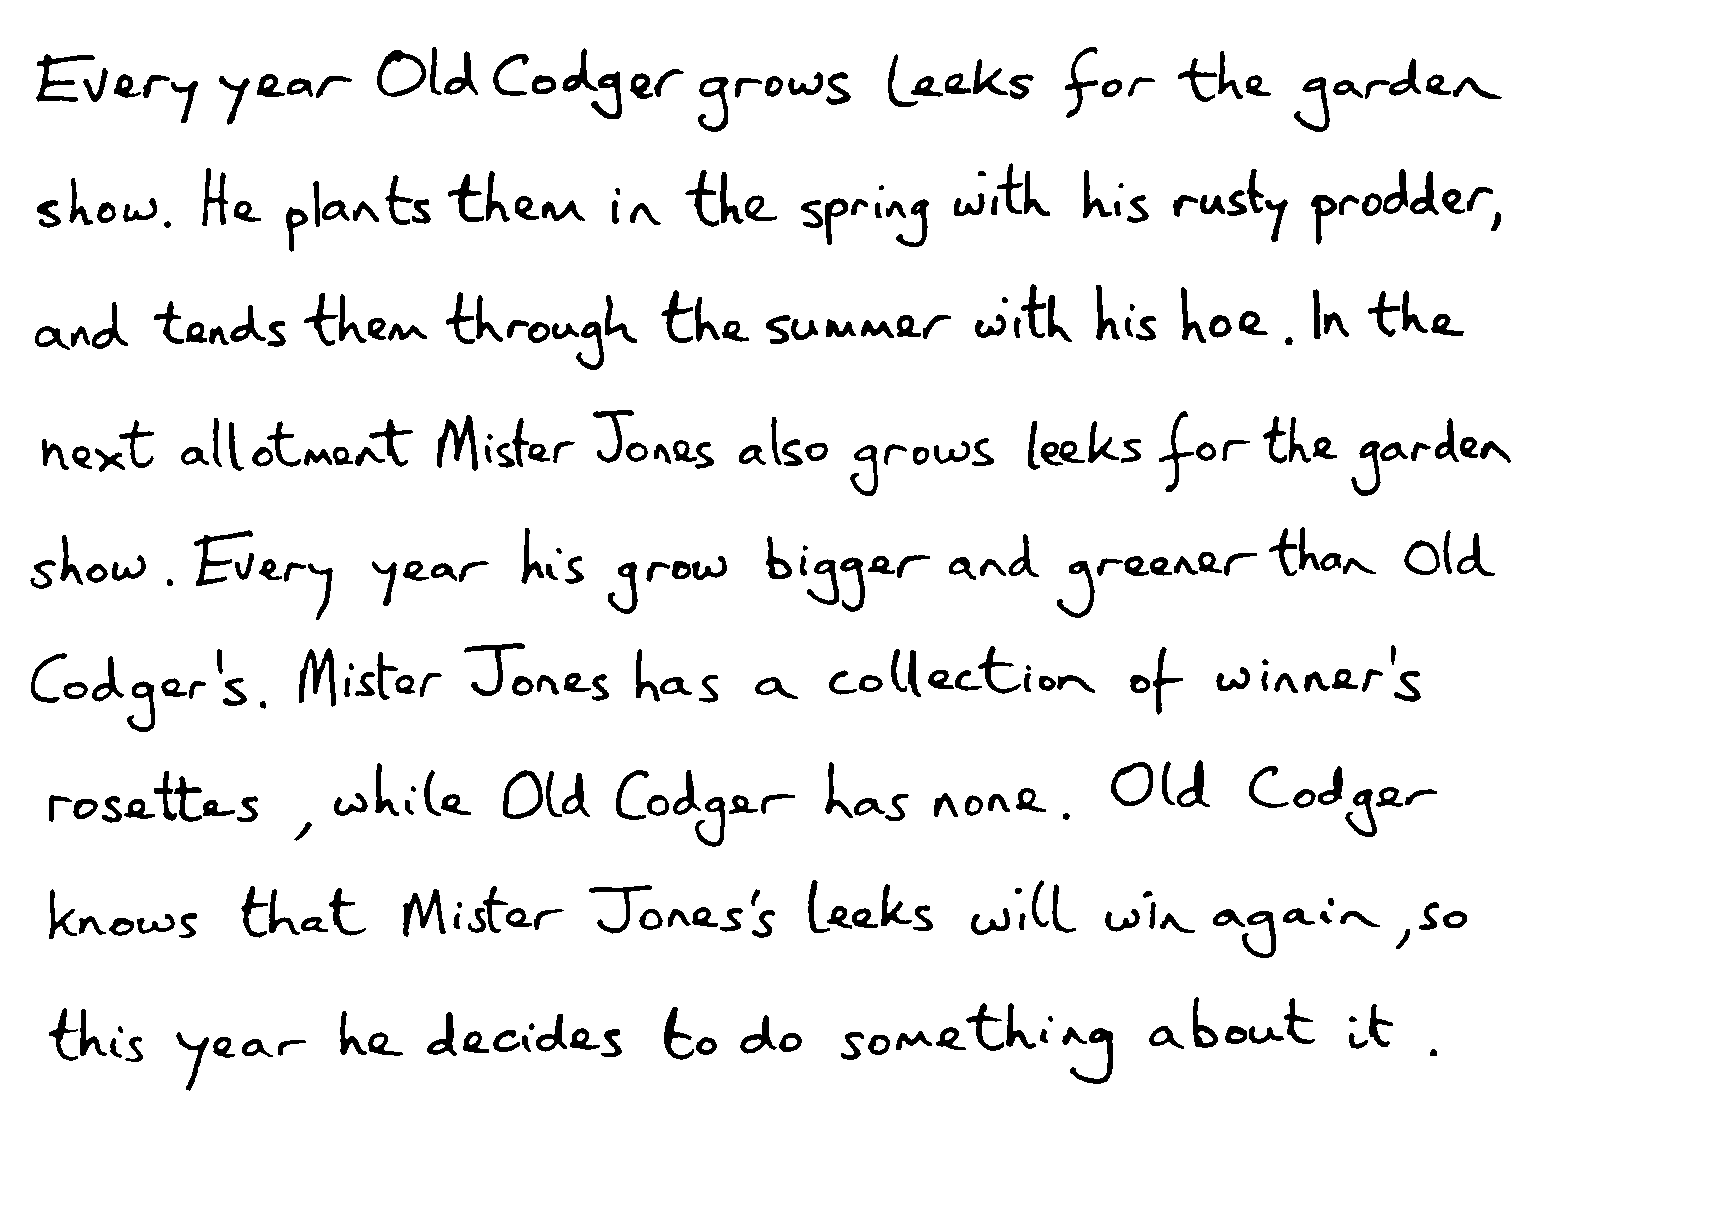 Every year Old Codger grows leeks for the garden
show. He plants them in the spring with his rusty prodder,
and tends them through the summer with his hoe. In the
next allotment Mister Jones also grows leeks for the garden
show. Every year his grow bigger and greener than Old
Codger's. Mister Jones has a collection of winner's
rosettes, while Old Codger has none. Old Codger
knows that Mister Jones's leeks will win again, so
this year he decides to do something about it.